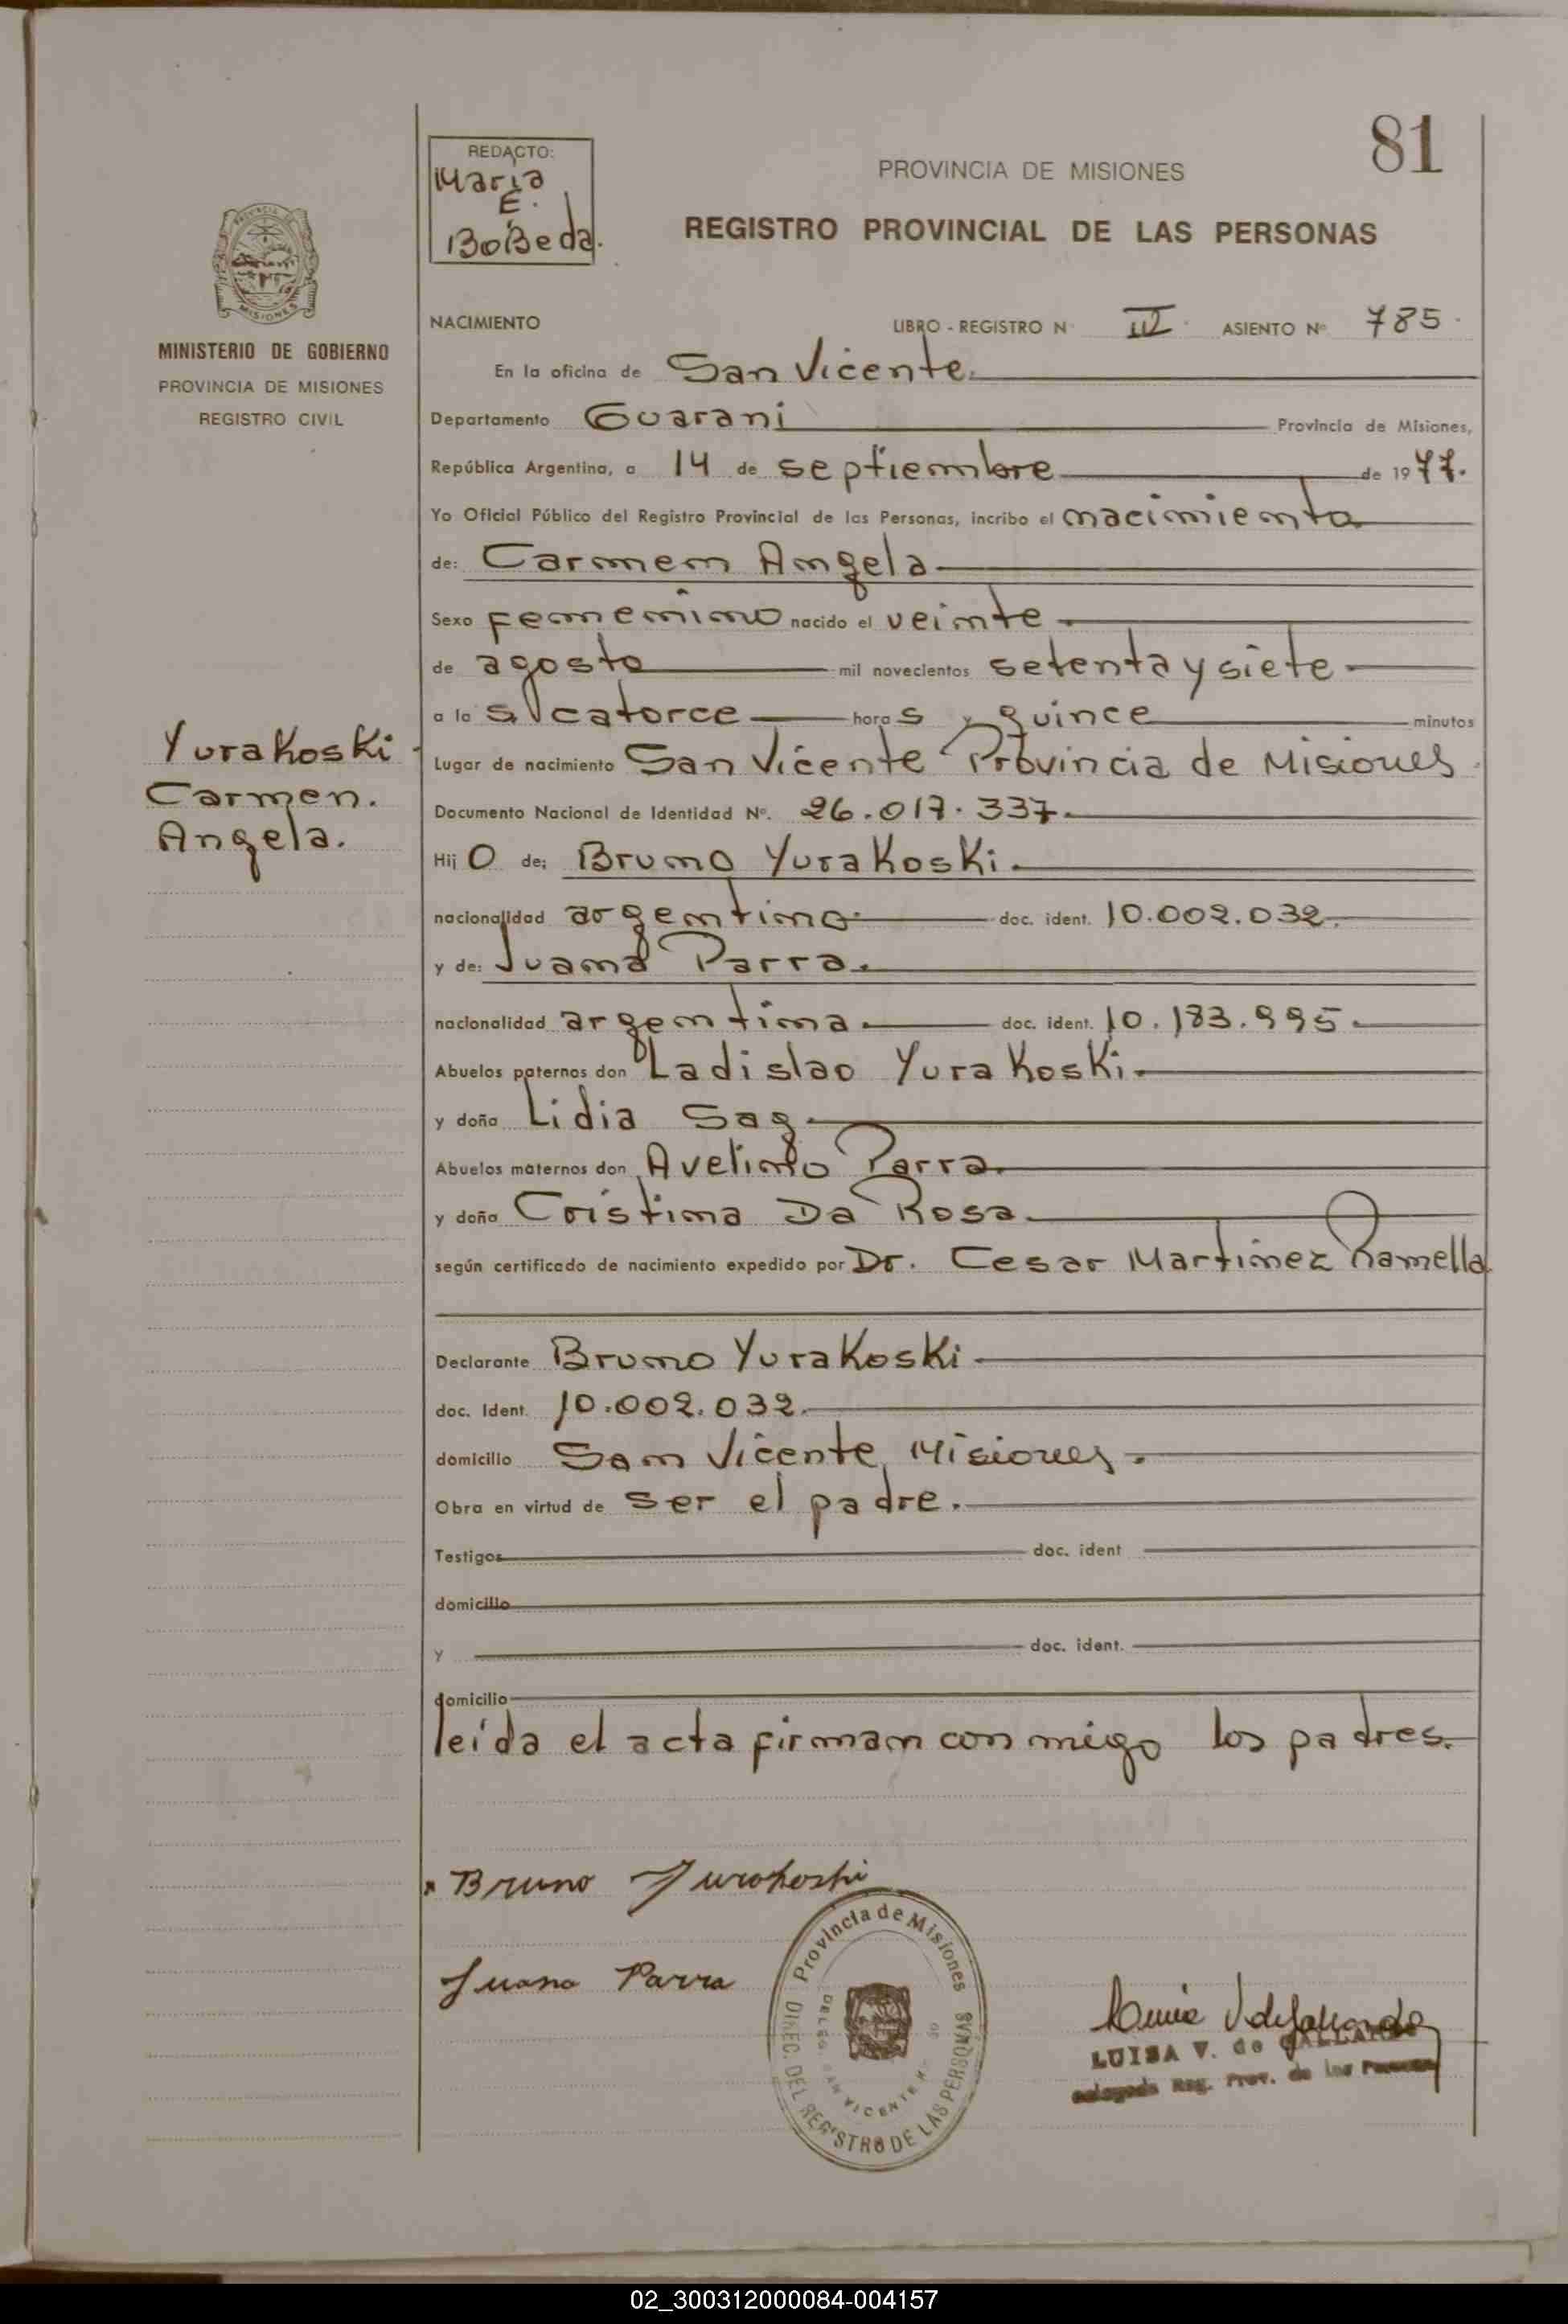 81
REDACTO:
Maria
E.
BoBeda.
PROVINCIA DE MISIONES
REGISTRO PROVINCIAL DE LAS PERSONAS
MISIONES
MINISTERIO DE GOBIERNO
PROVINCIA DE MISIONES
REGISTRO CIVIL
NACIMIENTO LIBRO - REGISTRO N° III ASIENTO N° 785.
En la oficina de San Vicente.
Departamento Guarani Provincia de Misiones,
República Argentina, a 14 de septiembre de 1977.
Yo Oficial Público del Registro Provincial de las Personas, incribo el nacimiento
de: Carmen Angela
Sexo femenino nacido el veinte
de agosto mil novecientos setenta y siete
a la s catorce hora s y quince minutos
Yurakoski
Carmen.
Angela.
Lugar de nacimiento San Vicente Provincia de Misiones
Documento Nacional de Identidad N°. 26.017.337.
Hij O de: Bruno Yurakoski.
nacionalidad argentino doc. ident. 10.002.032.
y de: Juana Parra.
nacionalidad argentina doc. ident. 10.183.995.
Abuelos paternos don Ladislao Yurakoski.
y doña Lidia Sag.
Abuelos maternos don Avelino Parra.
y doña Cristina Da Rosa.
según certificado de nacimiento expedido por Dr. Cesar Martinez Ramella
Declarante Bruno Yurakoski
doc. Ident. 10.002.032.
domicilio San Vicente, Misiones.
Obra en virtud de ser el padre.
Testigos doc. ident
domicilio
y doc. ident.
domicilio
leída el acta firman con migo los padres.
Bruno Yurakoski
Juana Parra
Provincia de Misiones
DIREC. DEL REGISTRO DE LAS PERSONAS
DELEG. SAN VICENTE
LUISA V. de GALLARDO
Delegada Reg. Prov. de las Personas
02_300312000084-004157